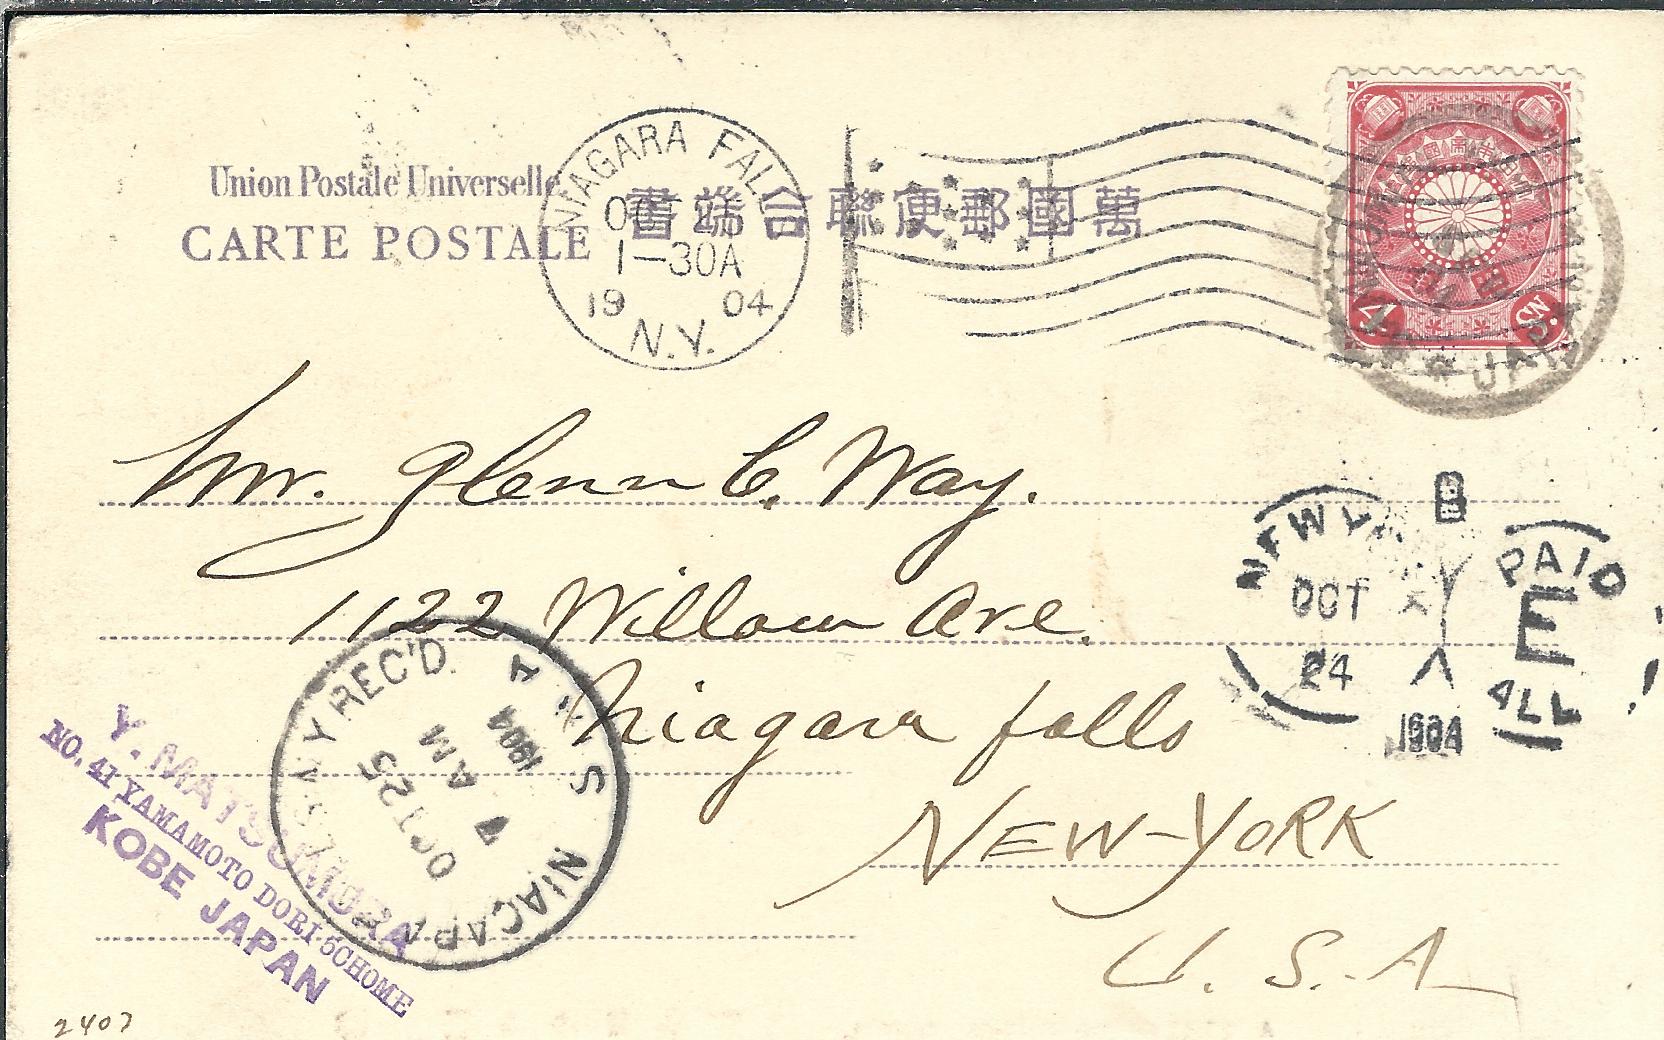 Union Postale Universelle
萬國郵便聯合端書
CARTE POSTALE
NIAGARA FALLS
OCT 25
1-30A
1904
N.Y.
4 SN.
JAPAN
Mr. Glenn C. Way.
1122 Willow Ave.
Niagara Falls
NEW-YORK
U.S.A
NEW YORK
OCT
24
1904
PAID
E
ALL
REC'D.
NIAGARA FALLS N.Y.
OCT 25
7 AM
1904
Y. MATSUMURA
NO. 41 YAMAMOTO DORI 5CHOME
KOBE JAPAN
2407